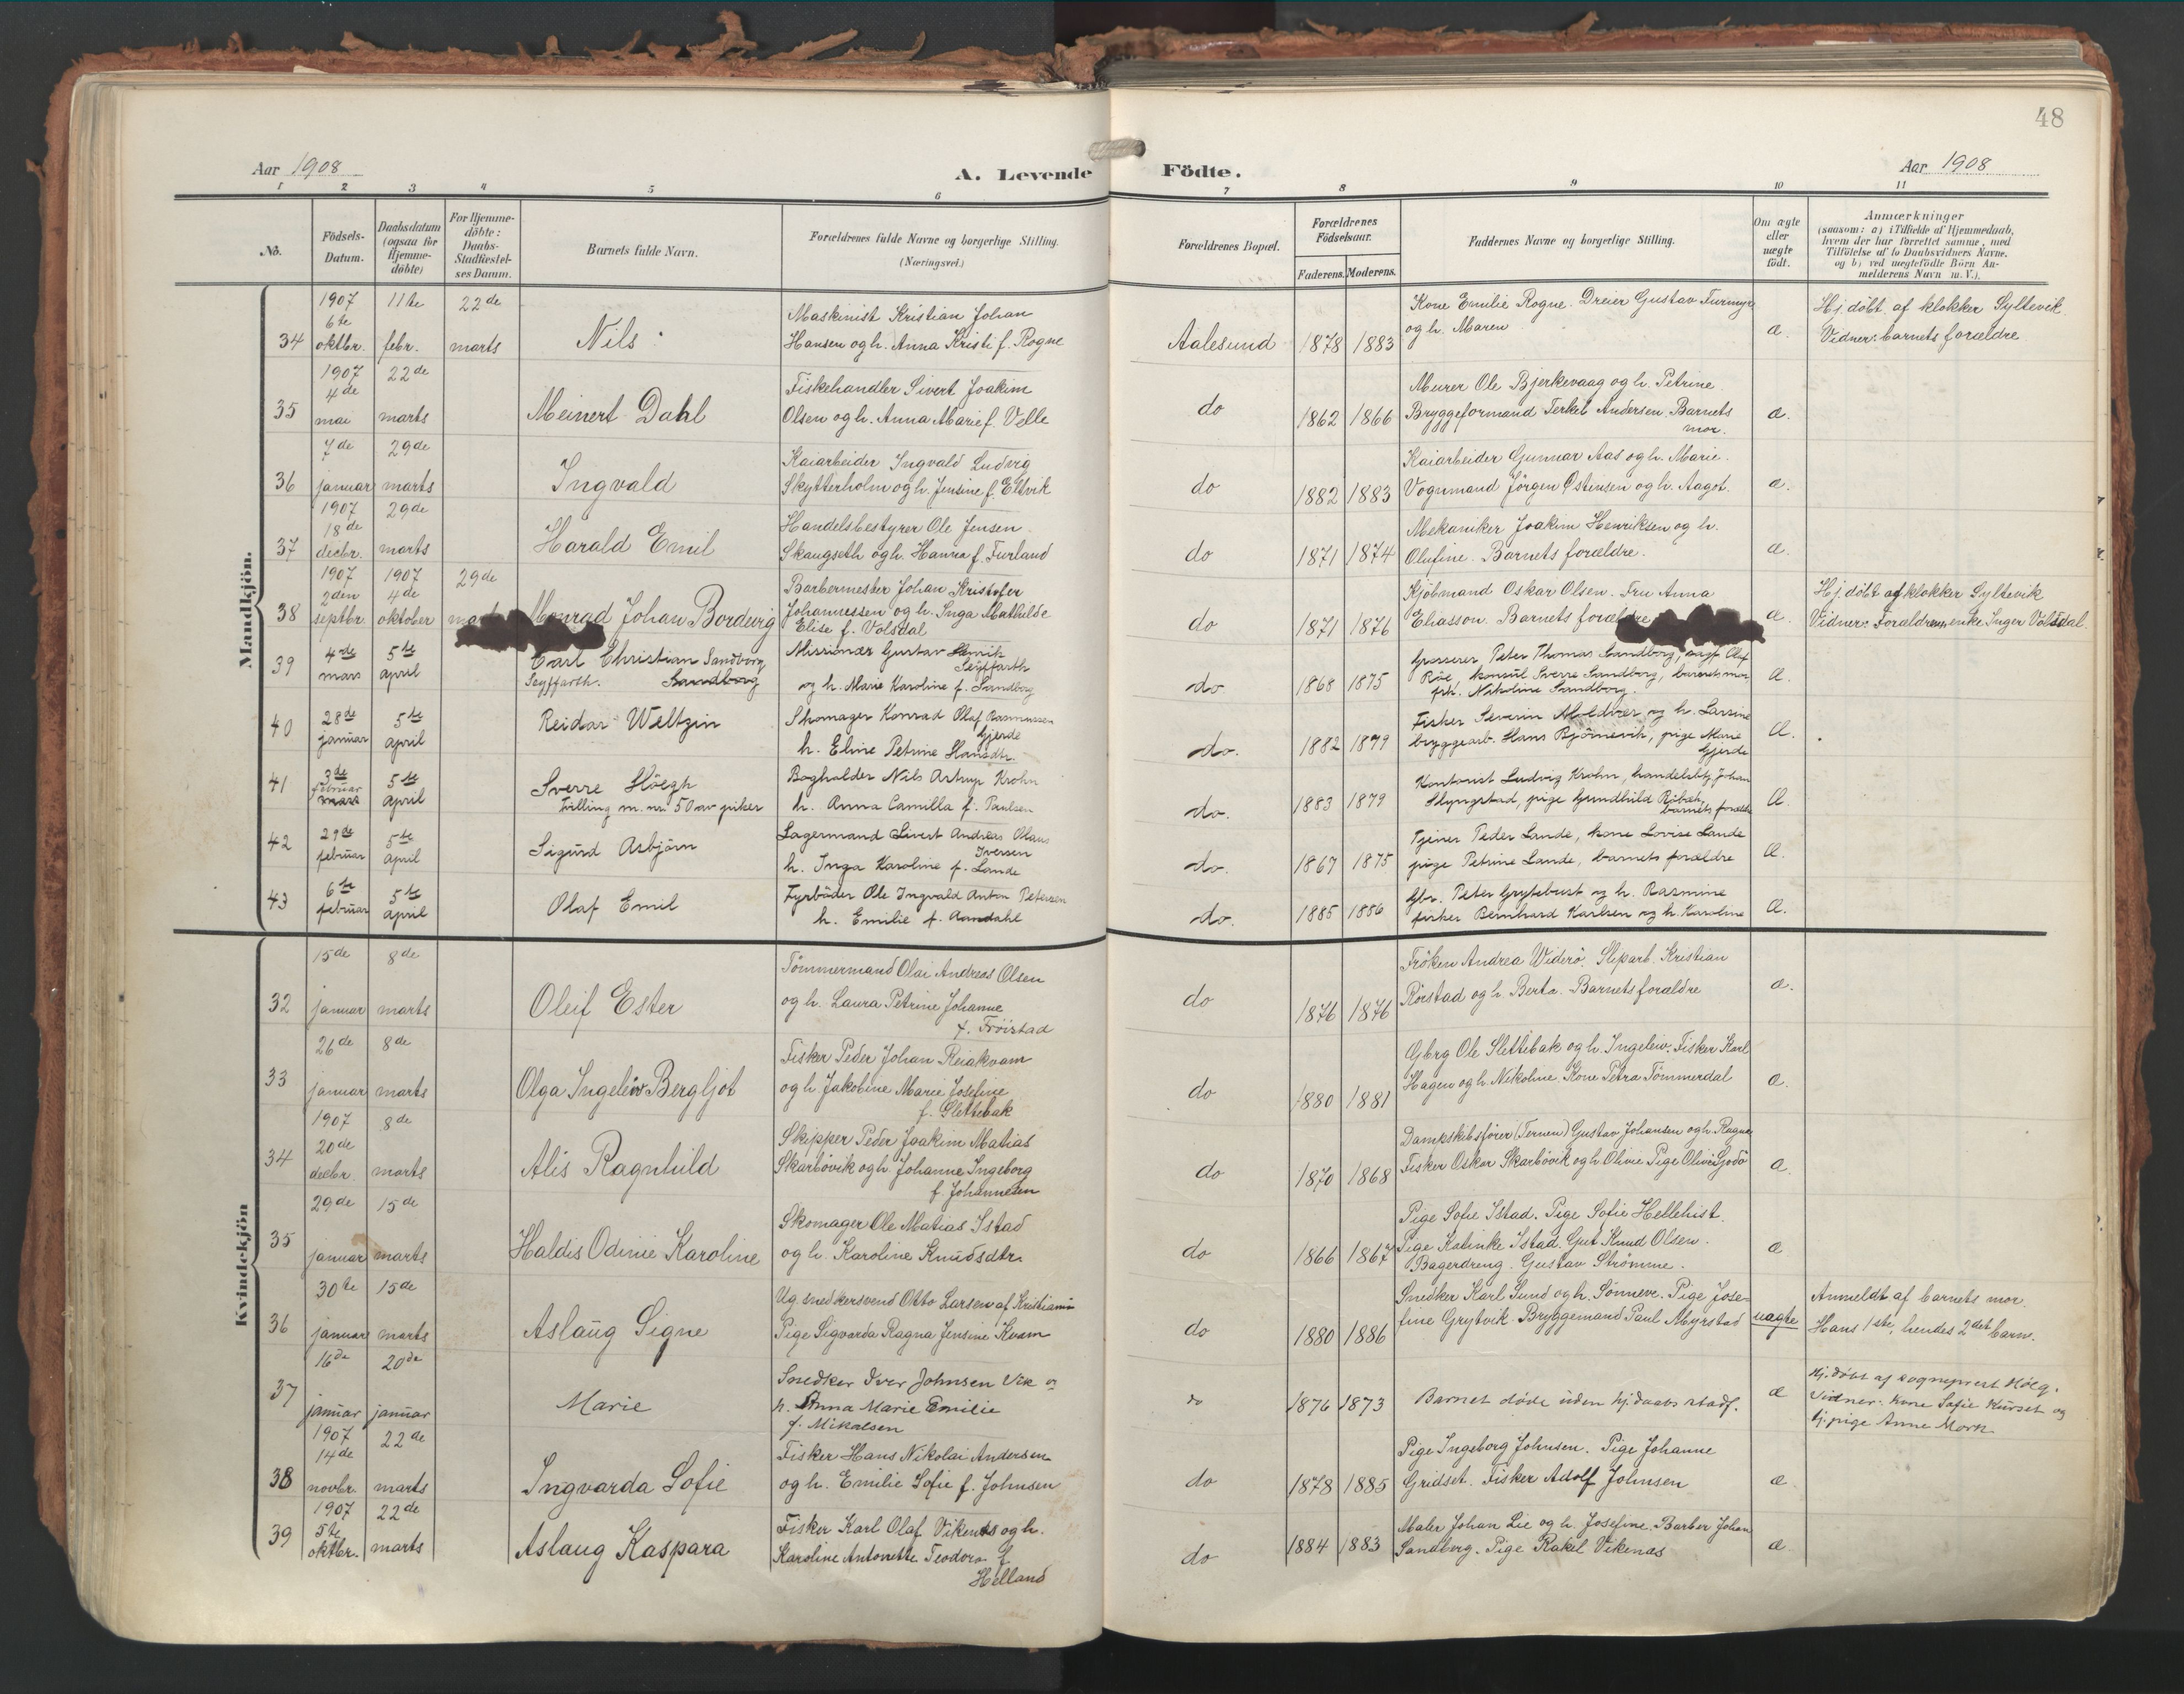 48
Aar 1908
A. Levende Födte.
Aar 1908
1 2 3 4 5 6 7 8 9 10 11
No.
Födsels-Datum.
Daabsdatum (ogsaa for Hjemme-döbte)
For Hjemme-döbte: Daabs-Stadfæstel-ses Datum.
Barnets fulde Navn.
Forældrenes fulde Navne og borgerlige Stilling. (Næringsvei.)
Forældrenes Bopæl.
Forældrenes Födselsaar.
Faderens. Moderens.
Faddernes Navne og borgerlige Stilling.
Om ægte eller uægte födt.
Anmærkninger
(saasom: a) i Tilfælde af Hjemmedaab, hvem der har forrettet samme, med Tilföielse af to Daabsvidners Navne, og b) ved uægtefödte Börn An-melderens Navn m. V.).
Mandkjön.
34 1907 6te oktbr. 11te febr. 22de marts Nils
Maskinist Kristian Johan
Hansen og h. Anna Kristi f. Rogne
Aalesund 1878 1883
Kone Emilie Rogne. Dreier Gustav Furmyr
og h. Maren
æ.
Hj. döbt af klokker Syltevik.
Vidner: barnets forældre
35 1907 4de mai 22de marts Meinert Dahl
Fiskehandler Sivert Joakim
Olsen og h. Anna Marie f. Velle
do 1862 1866
Murer Ole Bjerkevaag og h. Petrine.
Bryggeformand Terkel Andersen. Barnets
mor.
æ.
36 7de januar 29de marts Ingvald
Kaiarbeider Ingvald Ludvig
Skytterholm og h. Jensine f. Eltvik
do 1882 1883
Kaiarbeider Gunnar Aas og h. Marie.
Vognmand Jörgen Östensen og h. Aagot.
æ.
37 1907 18de decbr. 29de marts Harald Emil
Handelsbestyrer Ole Jensen
Skaugseth og h. Hanna f. Furland
do 1871 1874
Mekaniker Joakim Henriksen og h.
Olufine. Barnets forældre.
æ.
38 1907 2den septbr. 1907 4de oktober 29de marts Monrad Johan Bordevig
Barbermester Johan Kristofer
Johannessen og h. Inga Mathilde
Elise f. Volsdal
do 1871 1876
Kjöbmand Oskar Olsen. Fru Anna
Eliasson. Barnets forældre
æ.
Hj. döbt af klokker Syltevik
Vidner: Forældrene, enke Inger Volsdal.
39 4de mars 5te april Carl Christian Sandborg
Seyffarth. Sandborg
Missionær Gustav Henrik
Seyffarth
og h. Marie Karoline f. Sandborg
do. 1868 1875
Grosserer Peter Thomas Sandborg, sagf. Olaf
Röe, konsul Sverre Sandborg, barnets mor,
frk. Nikoline Sandborg.
Æ.
40 28de januar 5te april Reidar Weltzin
Skomager Konrad Olaf Rasmussen
Gjerde
h. Eline Petrine Hansdtr.
do. 1882 1879
Fisker Severin Moldvær og h. Larsine
bryggearb. Hans Björnevik, pige Marie
Gjerde
Æ.
41 3de februar mars 5te april Sverre Höegh
Tvilling m. nr. 50 av piker
Bogholder Nils Astrup Krohn
h. Anna Camilla f. Paulsen
do. 1883 1879
Kontorist Ludvig Krohn, handelsbtj. Johan
Slyngstad, pige Gundhild
barnets forældre
Æ.
42 29de februar 5te april Sigurd Asbjörn
Lagermand Sivert Andreas Olaus
Iversen
h. Inga Karoline f. Lande
do. 1867 1875
Tjener Peder Lande, kone Lovise Lande
pige Petrine Lande, barnets forældre
Æ.
43 6te februar 5te april Olaf Emil
Fyrböder Ole Ingvald Anton Petersen
h. Emilie f. Aamdahl
do. 1885 1886
Gbr. Peter Grytebust og h. Rasmine
fisker Bernhard Karlsen og h. Karoline
Æ.
Kvindekjön
32 15de januar 8de marts Oleif Ester
Tömmermand Olai Andreas Olsen
og h. Laura Petrine Johanne
f. Fröistad
do 1876 1876
Fröken Andrea Widerö. Sliparb. Kristian
Rörstad og h. Berta. Barnets forældre
æ.
33 26de januar 8de marts Olga Ingeleiv Bergljot
Fisker Peder Johan Reiakvam
og h. Jakobine Marie Josefine
f. Slettebak
do 1880 1881
Gbrg Ole Slettebak og h. Ingeleiv. Fisker Karl
Hagen og h. Nikoline. Kone Petra Tömmerdal
æ.
34 1907 20de decbr 8de marts Alis Ragnhild
Skipper Peder Joakim Matias
Skarbövik og h. Johanne Ingeborg
f. Johannesen
do 1870 1868
Dampskibsförer (Ternen) Gustav Johansen og h. Ragna
Fisker Oskar Skarbövik og h. Olivie. Pige Olivie Gjodö
æ.
35 29de januar 15de marts Haldis Odinie Karoline
Skomager Ole Matias Istad
og h. Karoline Knudsdtr.
do 1866 1867
Pige Sofie Istad. Pige Sofie Hellehist.
Pige Katinke Istad. Gut Knud Olsen.
Bagerdreng. Gustav Strömme.
æ
36 30te januar 15de marts Aslaug Signe
Ug. snedkersvend Otto Larsen af Kristiania
Pige Sigvarda Ragna Jensine Kvam
do 1880 1886
Snedker Karl Sund og h. Sönneve. Pige Jose-
fine Grytvik. Bryggemand Paul Myrstad
uægte
Anmeldt af barnets mor.
Hans 1ste, hendes 2det barn.
37 16de januar 20de januar Marie
Snedker Iver Johnsen Vik og
h. Anna Marie Emilie
f. Mikalsen
do 1876 1873
Barnet döde uden hj.daabs stadf.
æ
Hj. döbt af sogneprest Höeg.
Vidner: kone Sofie Kurset og
tj. pige Anne Mork
38 1907 14de novbr. 22de marts Ingvarda Sofie
Fisker Hans Nikolai Andersen
og h. Emilie Sofie f. Johnsen
do 1878 1885
Pige Ingeborg Johnsen. Pige Johanne
Gridset. Fisker Adolf Johnsen
æ
39 1907 5te oktbr. 22de marts Aslaug Kaspara
Fisker Karl Olaf Vikenes og h.
Karoline Antonette Teodora f.
Helland
do 1884 1883
Maler Johan Lie og h. Josefine. Barber Johan
Sandberg. Pige Rakel Vikenas
æ